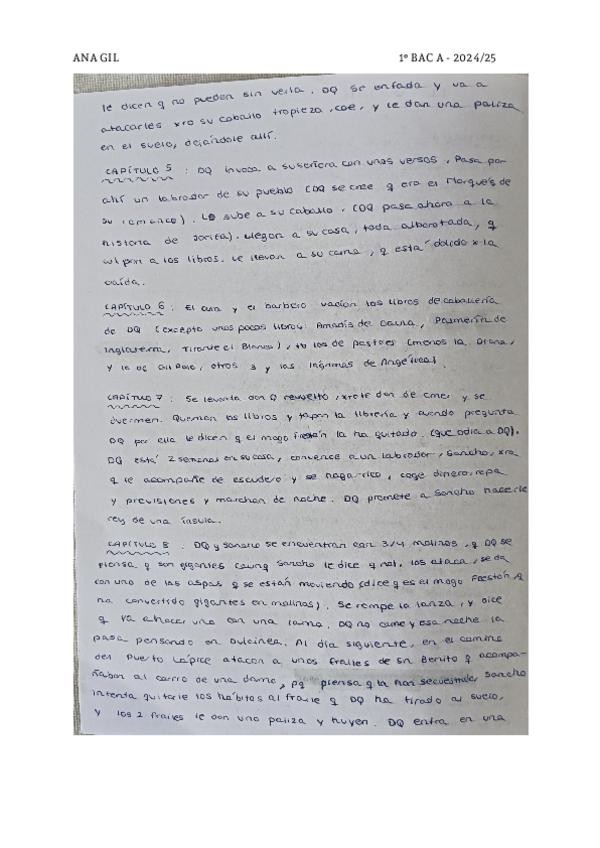 ANA GIL 1º BAC A - 2024/25
le dicen q no pueden sin verla. DQ se enfada y va a
atacarles xro su caballo tropieza, cae, y le dan una paliza
en el suelo, dejándole allí.
CAPÍTULO 5: DQ invoca a su señora con unos versos, Pasa por
allí un labrador de su pueblo (DQ se cree q era el Marqués de
su romance). Lo sube a su caballo. (DQ pasa ahora a la
historia de Jarifa). Llegan a su casa, toda alborotada, q
culpan a los libros. Le llevan a su cama, q está dolido x la
caída.
CAPÍTULO 6: El cura y el barbero vacían los libros de caballería
de DQ (excepto unos pocos libros: Amadís de Gaula, Palmerín de
Inglaterra, Tirante el Blanco), tb los de pastores (menos la Diana,
y la de Gil Polo, otros 3 y las lágrimas de Angélica).
CAPÍTULO 7: Se levanta don Q revuelto, xro le dan de comer y se
duermen. Queman los libros y tapan la librería y cuando pregunta
DQ por ella le dicen q el mago Frestón la ha quitado. (que odia a DQ).
DQ está 2 semanas en su casa, convence a un labrador, Sancho, xra
q le acompañe de escudero y se haga rico, coge dinero, ropa
y previsiones y marchan de noche. DQ promete a Sancho hacerle
rey de una ínsula.
CAPÍTULO 8: DQ y Sancho se encuentran con 3/4 molinos, q DQ se
piensa q son gigantes (aunq Sancho le dice q no). los ataca, se da
con uno de las aspas q se están moviendo (dice q es el mago Frestón q
ha convertido gigantes en molinos). Se rompe la lanza, y dice
q va a hacer una con una rama. DQ no come y esa noche la
pasa pensando en Dulcinea. Al día siguiente, en el camino
del Puerto Lápice atacan a unos frailes de Sn Benito q acompa-
ñaban al carro de una dama, pq piensa q la han secuestrado, Sancho
intenta quitarle los hábitos al fraile q DQ ha tirado al suelo,
y los 2 frailes le dan una paliza y huyen. DQ entra en una